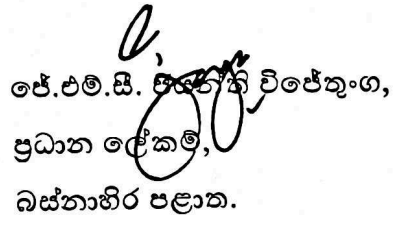 ජේ.එම්.සී. ජයන්ති විජේතුංග,
ප්‍රධාන ලේකම්,
බස්නාහිර පළාත.